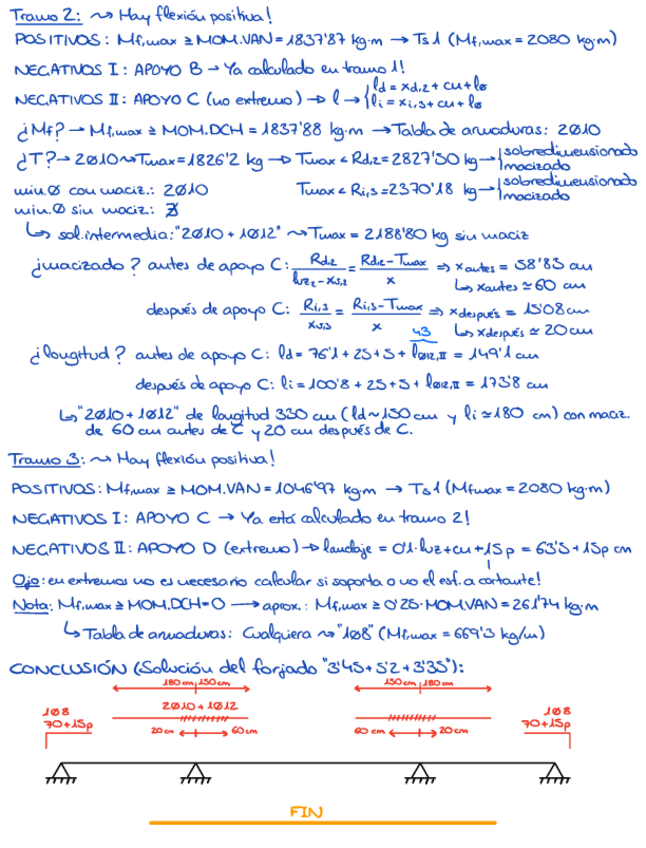 Tramo 2: ⤳ Hay flexión positiva!
POSITIVOS: Mf,max ≥ MOM.VAN = 1837'87 kg·m → Ts1 (Mf,max = 2080 kg·m)
NEGATIVOS I: APOYO B → Ya calculado en tramo 1!
NEGATIVOS II: APOYO C (no extremo) → l → { ld = xd,2 + cu + lø
li = xi,3 + cu + lø
¿Mf? → Mf,max ≥ MOM.DCH = 1837'88 kg·m → Tabla de armaduras: 2Ø10
¿T? → 2Ø10 ⤳ Tmax = 1826'2 kg → Tmax < Rd,2 = 2827'50 kg → { sobredimensionado
macizado
min.Ø con maciz.: 2Ø10 Tmax < Ri,3 = 2370'18 kg → { sobredimensionado
macizado
min.Ø sin maciz.:
↳ sol.intermedia: "2Ø10 + 1Ø12" ⤳ Tmax = 2188'80 kg sin maciz
¿macizado? antes de apoyo C: Rd,2 / (lv2 - x5,2) = (Rd,2 - Tmax) / x ⇒ xantes = 58'83 cm
↳ xantes ≃ 60 cm
después de apoyo C: Ri,3 / x5,3 = (Ri,3 - Tmax) / x ⇒ xdespués = 15'08 cm
43 ↳ xdespués ≃ 20 cm
¿longitud? antes de apoyo C: ld = 76'1 + 25 + 5 + lø12,II = 149'1 cm
después de apoyo C: li = 100'8 + 25 + 5 + lø12,II = 173'8 cm
↳ "2Ø10 + 1Ø12" de longitud 330 cm (ld ~ 150 cm y li ≃ 180 cm) con maciz.
de 60 cm antes de C y 20 cm después de C.
Tramo 3: ⤳ Hay flexión positiva!
POSITIVOS: Mf,max ≥ MOM.VAN = 1046'97 kg·m → Ts1 (Mfmax = 2080 kg·m)
NEGATIVOS I: APOYO C → Ya está calculado en tramo 2!
NEGATIVOS II: APOYO D (extremo) → lanclaje = 0'1·lv2 + cu + 15p = 63'5 + 15p cm
Ojo: en extremos no es necesario calcular si soporta o no el esf. a cortante!
Nota: Mf,max ≥ MOM.DCH = 0 → aprox.: Mf,max ≥ 0'25·MOM.VAN = 261'74 kg·m
↳ Tabla de armaduras: Cualquiera ⤳ "1Ø8" (Mf,max = 669'3 kg/m)
CONCLUSIÓN (Solución del forjado "3'45 + 5'2 + 3'35"):
180 cm 150 cm 150 cm 180 cm
1Ø8 2Ø10 + 1Ø12 1Ø8
70 + 15p 70 + 15p
20 cm 60 cm 60 cm 20 cm
FIN